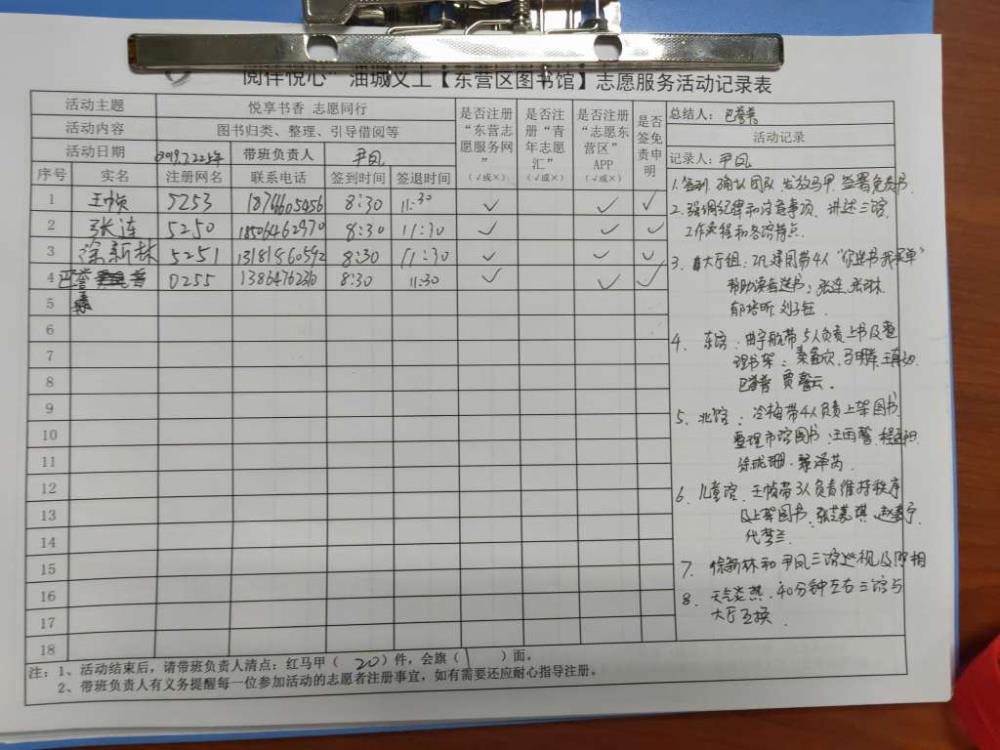 阅伴悦心 油城义工【东营区图书馆】志愿服务活动记录表
活动主题 悦享书香 志愿同行
活动内容 图书归类、整理、引导借阅等
活动日期 2019.7.22 带班负责人 尹凤
是否注册“东营志愿服务网”(√或×)
是否注册“青年志愿汇”(√或×)
是否注册“志愿东营区”APP(√或×)
是否签免责申明
序号 实名 注册网名 联系电话 签到时间 签退时间
1 王帧 5253 18746605456 8:30 11:30 √ √ √
2 张连 5250 18506462970 8:30 11:30 √ √ √
3 徐新林 5251 13181860592 8:30 11:30 √ √ √
4 0255 13864762310 8:30 11:30 √ √ √
5
6
7
8
9
10
11
12
13
14
15
16
17
18
总结人:
活动记录
记录人:尹凤
1.签到,确认团队,发放马甲,签署免责书.
2.强调纪律和注意事项,讲述三馆
工作流程和各馆特点.
3.大厅组:带4人“你选书我买单”
帮助读者选书:张连,张琳
4.东馆:曲宇航带5人负责上书及整
理书架:
5.北馆:冷梅带4人负责上架图书
整理市馆图书:汪雨馨
6.儿童馆,王帧带3人负责维持秩序
及上架图书
7.徐新林和尹凤三馆巡视及照相
8.天气炎热,40分钟左右三馆与
大厅互换.
注:1、活动结束后,请带班负责人清点:红马甲(20)件,会旗(1)面。
2、带班负责人有义务提醒每一位参加活动的志愿者注册事宜,如有需要还应耐心指导注册。